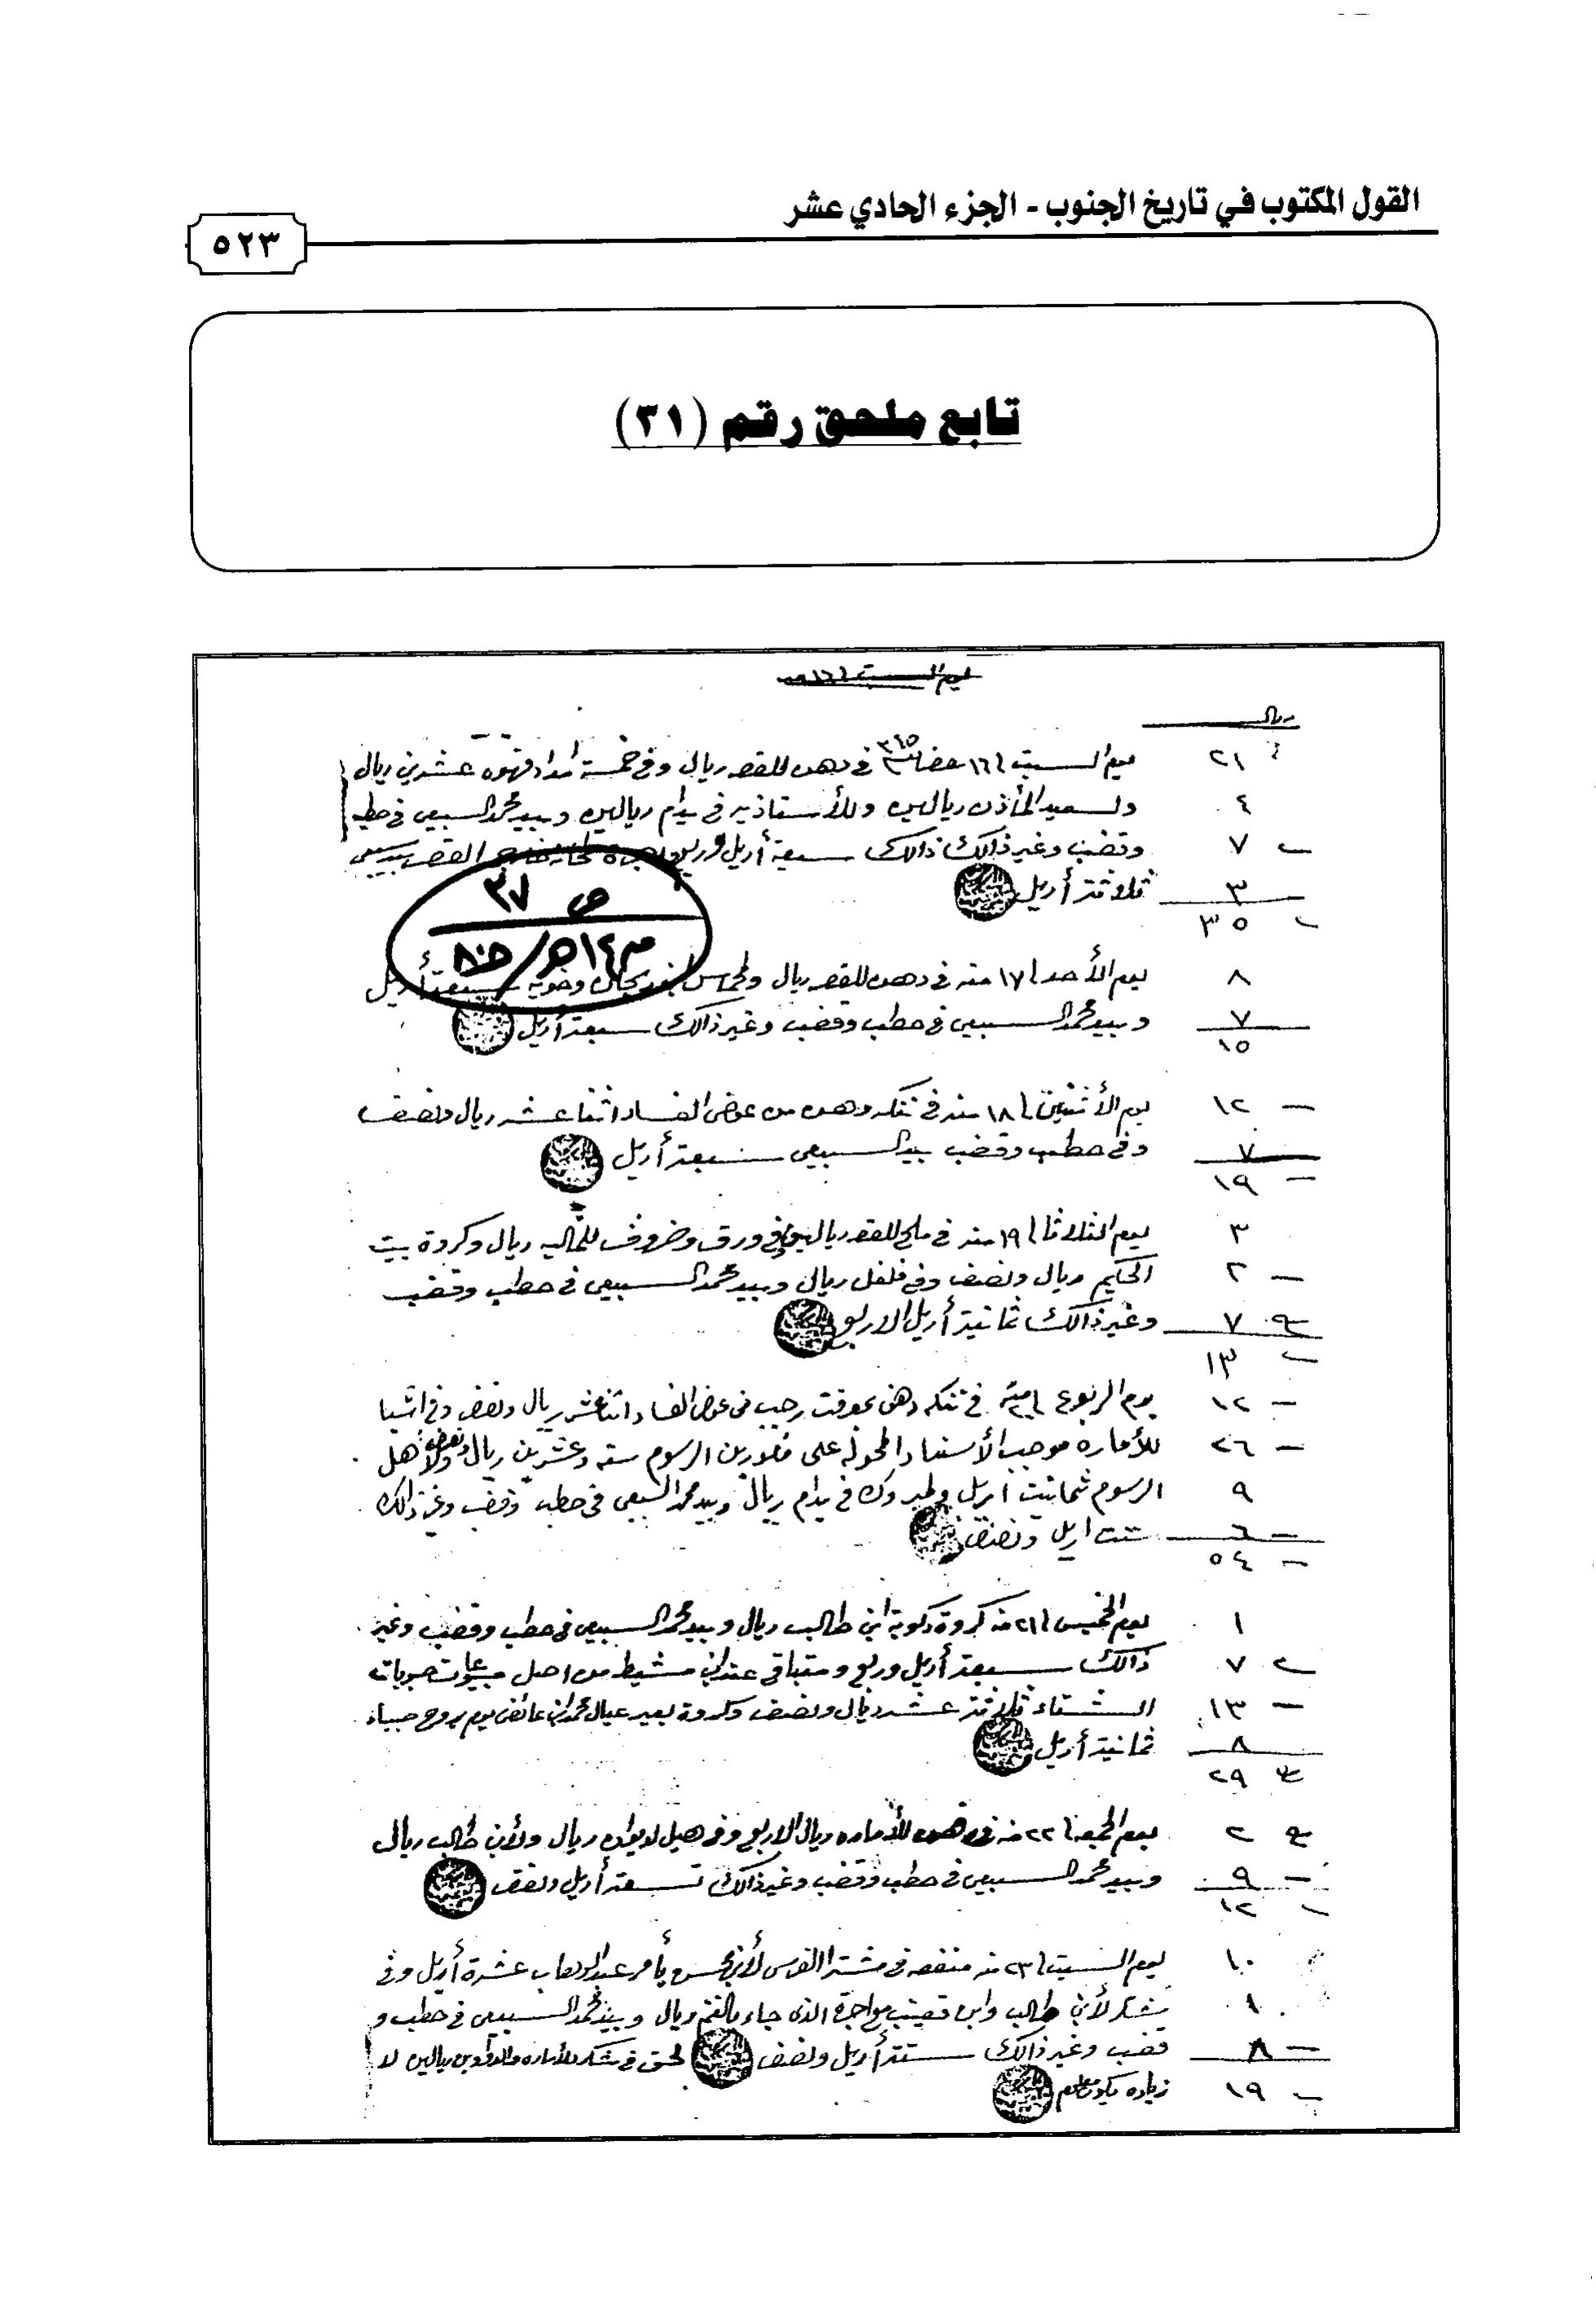 القول المكتوب في تاريخ الجنوب - الجزء الحادي عشر
٥٢٣
تابع ملحق رقم (٣١)
يوم السبت ١٦
ريال
٢١ يوم السبت ١٦ في دهن للقصر ريال وفي خمسة أمداد قهوه عشرين ريال
٤ ولسعيد المأذن ريالين وللأستاذيه في يدام ريالين وبيد محمد السبيعي في حطب
٧ وقضب وغير ذالك سبعة أريل وربع القصر بيد سبيعي
٣ ثلاثة أريل
٣٥
ص ٣٧
٨ يوم الأحد ١٧ منه في دهن للقصر ريال سبعة أريل
٧ وبيد محمد السبيعي في حطب وقضب وغير ذالك سبعة أريل
١٥
١٢ يوم الأثنين ١٨ منه في تنكه دهن من عوض الفساد اثنا عشر ريال ونصف
٧ وفي حطب وقضب بيد السبيعي سبعة أريل
١٩
٣ يوم الثلاثا ١٩ منه في ملح للقصر ريالين وفي ورق وضروف للماليه ريال وكروة بيت
٢ الحكيم ريال ونصف وفي فلفل ريال وبيد محمد السبيعي في حطب وقضب
٧ وغير ذالك ثمانية أريل الا ربع
١٣
١٢ يوم الربوع ٢٠ منه في تنكه دهن بمعرفت رجب من عوض الفساد اثنا عشر ريال ونصف وفي اشيا
٢٦ للأماره موجب الأسناد المحوله على الرسوم سته وعشرين ريال ونصف ولأهل
٩ الرسوم ثمانيت اريل ولمبروك في يدام ريال وبيد محمد السبيعي في حطب وقضب وغير ذالك
٦ ستت اريل ونصف
٥٤
١ يوم الخميس ٢١ منه كروة ركوبة ابن طالب ريال وبيد محمد السبيعي في حطب وقضب وغير
٧ ذالك سبعة أريل وربع ومتباقي عند ابن مشيط من اصل مبيوعات حبوبات
١٣ الشتاء ثلاثة عشر ريال ونصف وكروة بعير عيال محمد بن عائض يوم يروح صبياء
٨ ثمانية أريل
٢٩
٢ يوم الجمعة ٢٢ منه في دهن للأماره ريال الا ربع وفي هيل ريال ولأبن طالب ريال
٩ وبيد محمد السبيعي في حطب وقضب وغير ذالك تسعة أريل ونصف
١٢
١٠ يوم السبت ٢٣ منه في مشترا الفرس بأمر عبدالوهاب عشرة أريل وفي
١ شكر لأبن طالب الذي جاء بالغنم ريال وبيد محمد السبيعي في حطب و
٨ قضب وغير ذالك ستة أريل ونصف لحق في شكر للأماره ريالين لا
١٩ زياده يكون معلوم